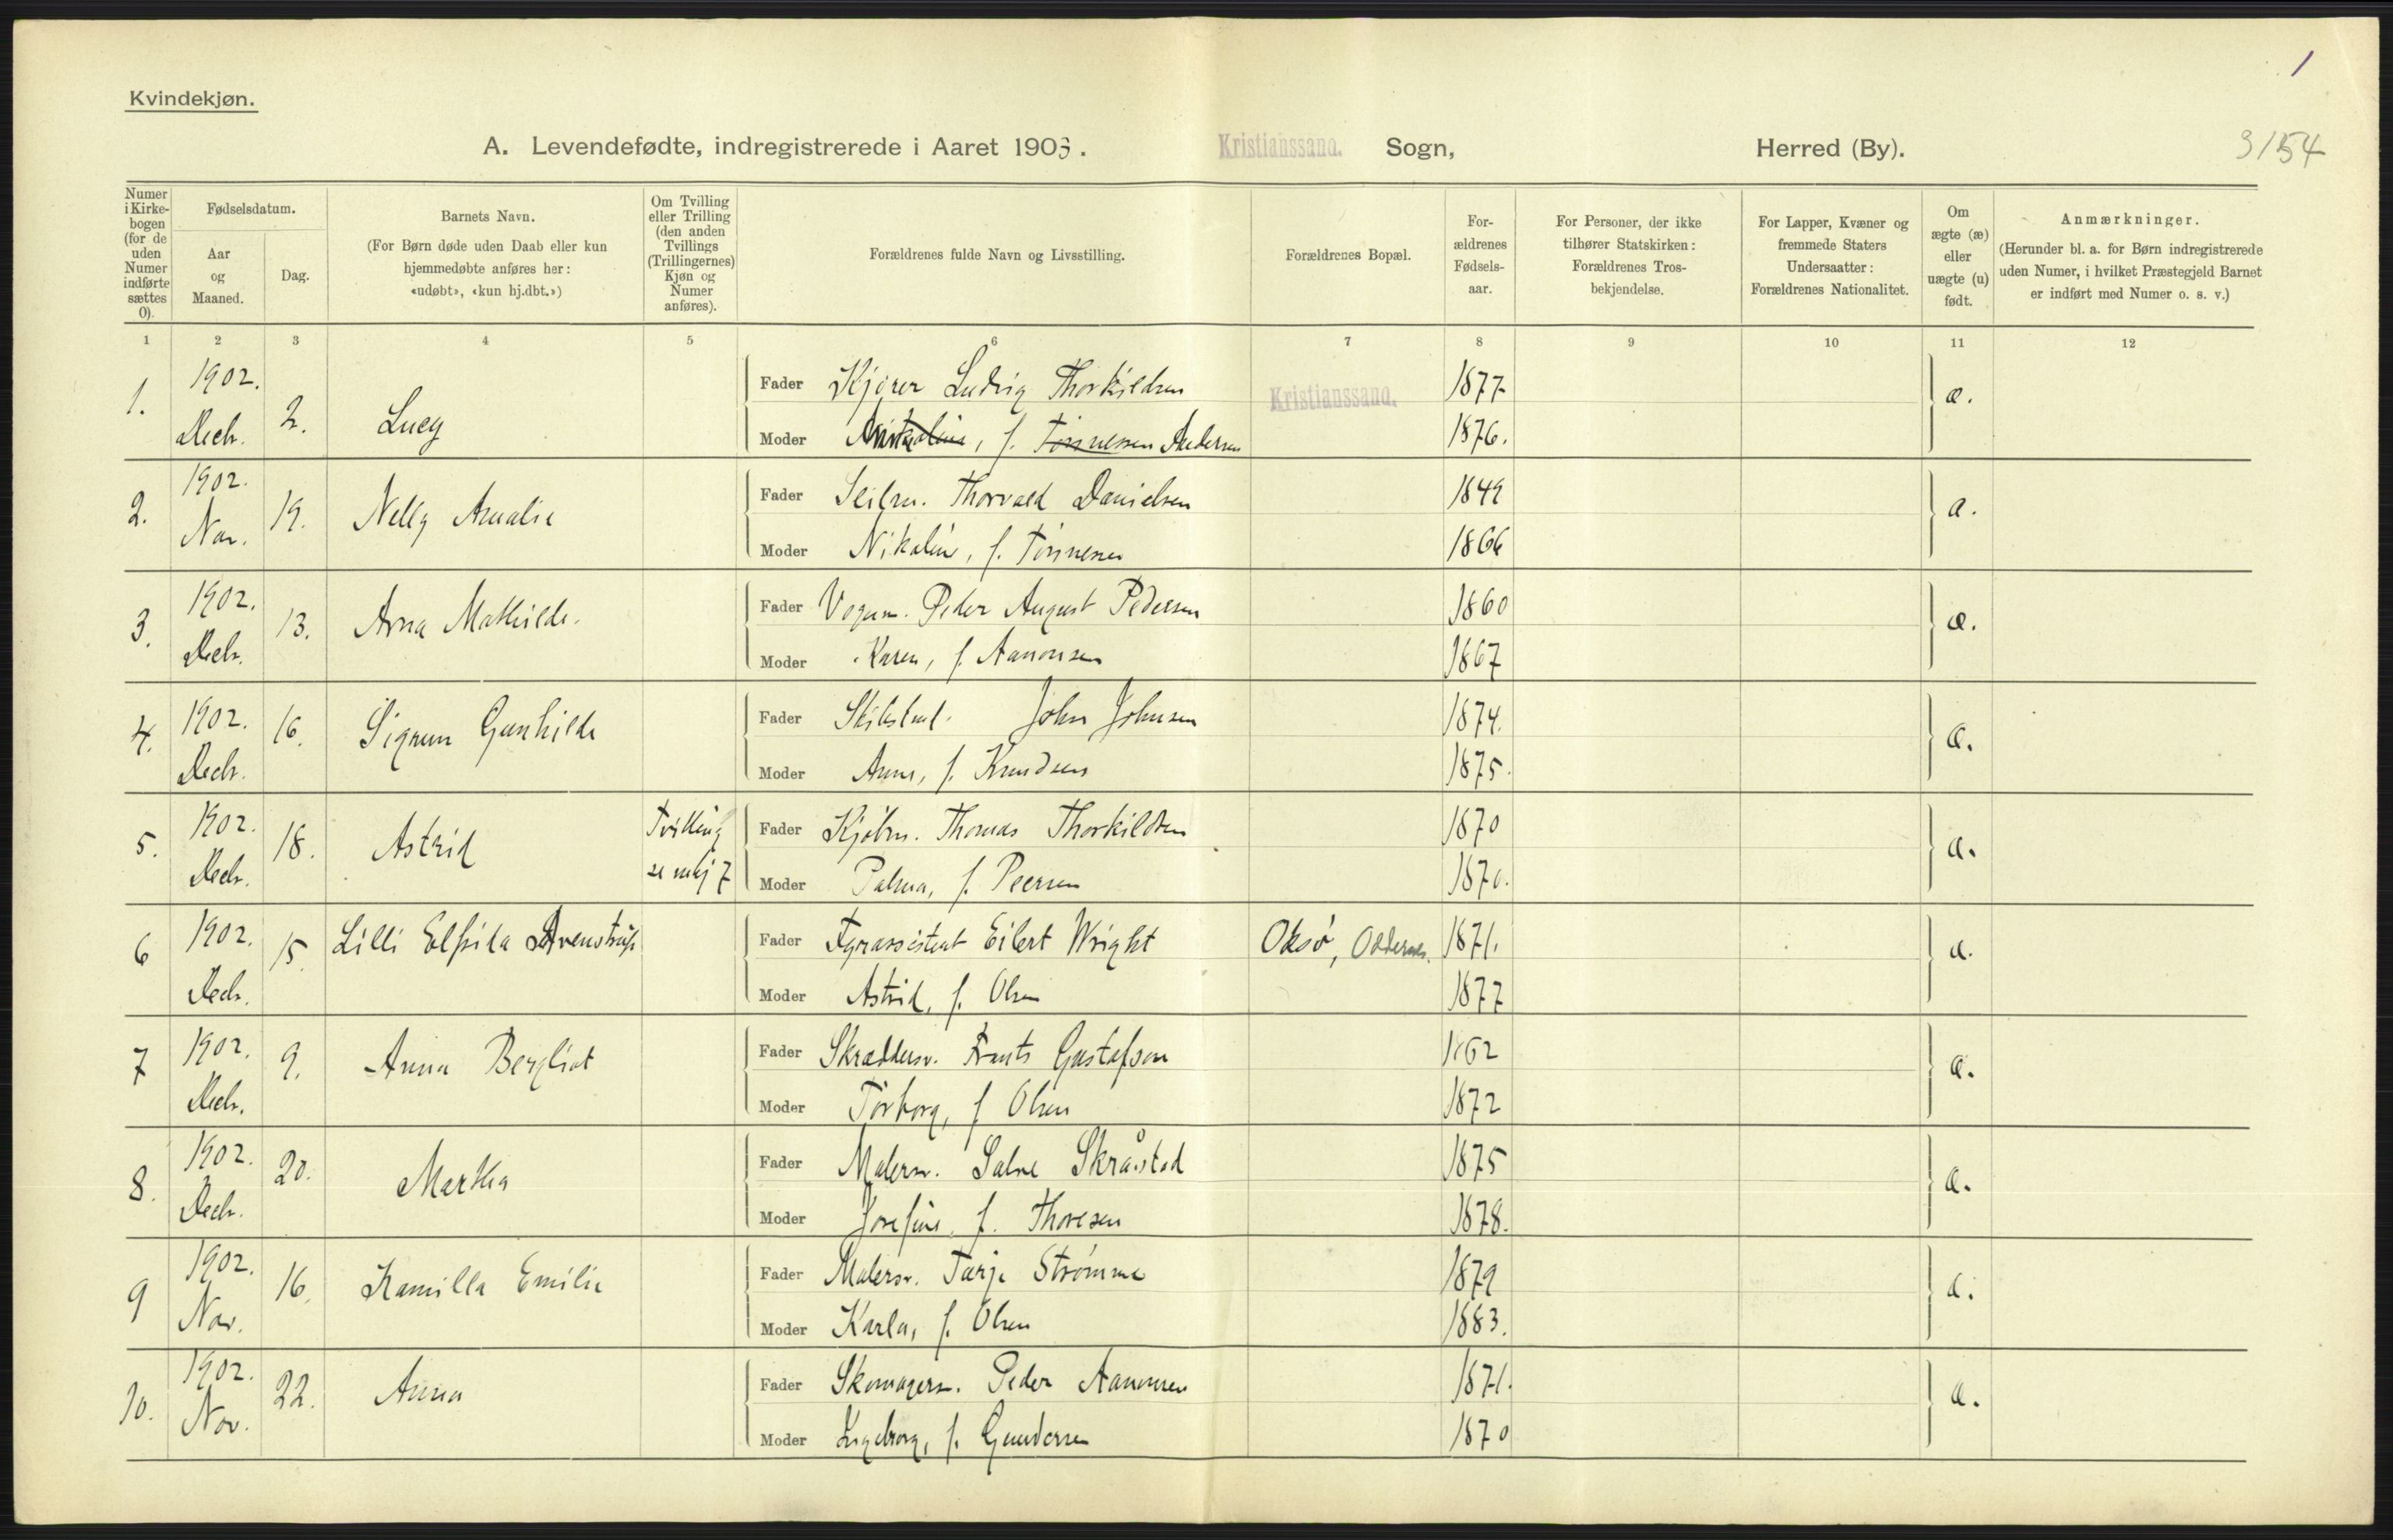 1
Kvindekjøn.
A. Levendefødte, indregistrerede i Aaret 1903. Kristianssand. Sogn, Herred (By).
3/154
Numer i Kirke-bogen (for de uden Numer indførte sættes 0).
Fødselsdatum.
Aar og Maaned.
Dag.
Barnets Navn.
(For Børn døde uden Daab eller kun hjemmedøbte anføres her: «udøbt», «kun hj.dbt.»)
Om Tvilling eller Trilling (den anden Tvillings (Trillingernes) Kjøn og Numer anføres).
Forældrenes fulde Navn og Livsstilling.
Forældrenes Bopæl.
For-ældrenes Fødsels-aar.
For Personer, der ikke tilhører Statskirken: Forældrenes Tros-bekjendelse.
For Lapper, Kvæner og fremmede Staters Undersaatter: Forældrenes Nationalitet.
Om ægte (æ) eller uægte (u) født.
Anmærkninger.
(Herunder bl. a. for Børn indregistrerede uden Numer, i hvilket Præstegjeld Barnet er indført med Numer o. s. v.)
1 2 3 4 5 6 7 8 9 10 11 12
1. 1902. Decb. 2. Lucy
Fader Kjører Ludvig Thorkildsen Kristianssand. 1877 æ.
Moder , f. Tønnesen Andersen 1876.
2. 1902. Nov. 19. Nelly Amalie
Fader Seilm. Thorvald Danielsen 1849 æ.
Moder Nikolin, f. Tønnesen 1866
3. 1902. Decb. 13. Arna Mathilde.
Fader Vognm. Peder August Pedersen 1860 æ.
Moder Karen, f. Aanonsen 1867
4. 1902. Decb. 16. Sigrun Gunhilde
Fader John Johnsen 1874. æ.
Moder Anne, f. Knudsen 1875.
5. 1902. Decb. 18. Astrid Tvilling 7
Fader Kjøbm. Thomas Thorkildsen 1870 æ.
Moder Palma, f. Peersen 1870.
6 1902. Decb. 15. Lilli Elfrida Avenstrup
Fader Fyrassistent Eilert Wright Oksø, Oddernes. 1871. æ.
Moder Astrid, f. Olsen 1877
7 1902. Decb. 9. Anna Bergliot
Fader Skræddersv. Frants Gustafson 1862 æ.
Moder Torborg, f Olsen 1872
8. 1902. Decb. 20. Martha
Fader Malersv. Salve Skråstad 1875 æ.
Moder Josefine, f. Thorsen 1878.
9 1902. Nov. 16. Kamilla Emilie
Fader Malersv. Tarje Strømme 1879 æ.
Moder Karla, f. Olsen 1883.
10. 1902. Nov. 22. Anna
Fader Skomagersv. Peder Aanonsen 1871. æ.
Moder Ingeborg, f. Gundersen 1870